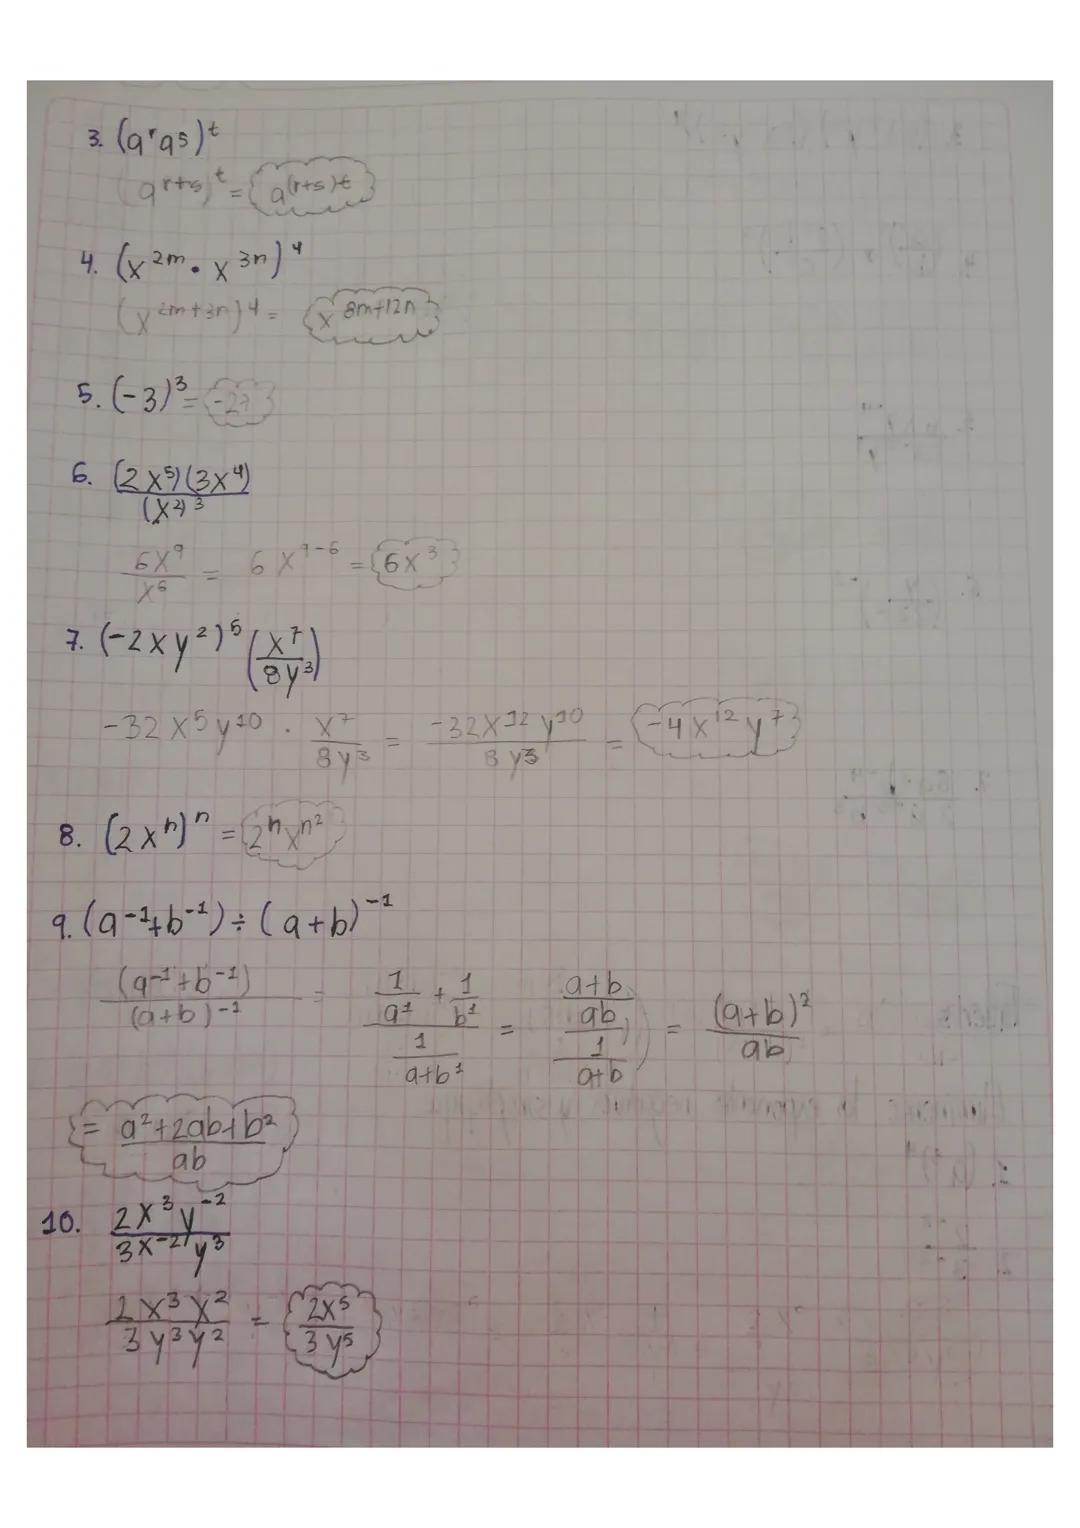 3. (a^r a^s)^t
(a^{r+s})^t = a^{(r+s)t}
4. (x^{2m} · x^{3n})^4
(x^{2m+3n})^4 = x^{8m+12n}
5. (-3)^3 = -27
6. (2x^5)(3x^4) / (x^2)^3
6x^9 / x^6 = 6x^{9-6} = 6x^3
7. (-2xy^2)^5 (x^7 / 8y^3)
-32x^5y^{10} · x^7 / 8y^3 = -32x^{12}y^{10} / 8y^3 = -4x^{12}y^7
8. (2x^n)^n = 2^n x^{n^2}
9. (a^{-1}+b^{-1}) ÷ (a+b)^{-1}
(a^{-1}+b^{-1}) / (a+b)^{-1} = (1/a^1 + 1/b^1) / (1/a+b^1) = (a+b/ab) / (1/a+b) = (a+b)^2 / ab
= a^2+2ab+b^2 / ab
10. 2x^3y^{-2} / 3x^{-2}y^3
2x^3x^2 / 3y^3y^2 = 2x^5 / 3y^5